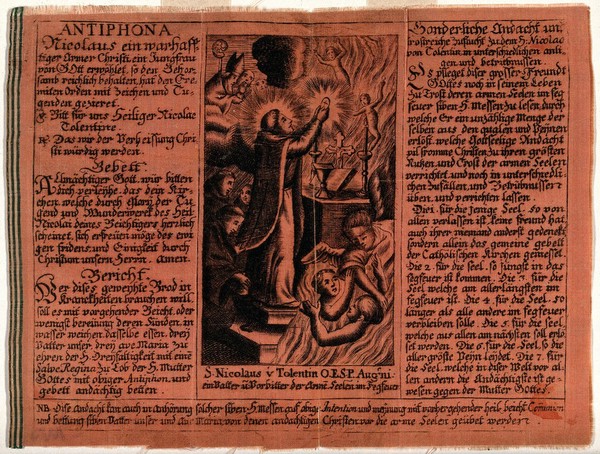 ANTIPHONA
Nicolaus ein warhaff-
tiger Armer Christi ein Jungfrau
von Gott erwöhlet, so den Gehor-
samb reichlich behalten, hat den Ere-
miten Orden mit Zeichen und Tu-
genden gezieret.
℣ Bitt für uns Heiliger Nicolae
Tolentine.
℟ Das wir der Verheissung Chri-
sti würdig werden.
Gebett.
Allmächtiger Gott, wir bitten
dich verleyhe, das dein Kir-
chen, welche durch glory der Tu-
gend und Wunderwerck des Heil.
Nicolai deines Beichtigers herrlich
scheinet, sich erfreuen möge des ewi-
gen fridens, und Einigkeit durch
Christum unsern Herrn. Amen.
Bericht.
Wer dises geweyhte Brod in
Kranckheiten brauchen will,
soll es mit vorgehender Beicht, oder
wenigst bereuung deren Sünden, in
wasser weichen, dasselbe essen, drey
Vatter unser, drey ave Maria zu
ehren der H. Dreyfaltigkeit mit eine
Salve Regina zu Lob der H. Mutter
Gottes mit obiger Antiphon, und
gebett andächtig betten.
S. Nicolaus v Tolentin O.E.S.P. Aug'ni.
ein Vatter u Vorbitter der Arme Seelen im Fegfeuer
Sonderliche Andacht un
trostreiche Zuflucht zu dem H. Nicolao
von Tolentin in unterschiedlichen anli-
gen und betrübnussen.
Es pflegte diser grosser Freundt
Gottes noch in seinem Leben
zu Trost deren armen Seelen im feg
feuer siben H. Messen zu lesen, durch
welche Er ein unzahlige Menge der
selben aus den qualen und Peynen
erlöst, welche Gottseelige Andacht
vil fromme Christen zu ihren grösten
Nutzen, und Trost der armen Seelen
verrichtet, und noch in unterschiedli
chen zufällen, und Betrübnussen
üben, und verrichten lassen.
Die 1. für die jenige Seel, so von
allen verlassen ist, keine freund hat
auch ihrer niemand anderst gedenckt
sondern allein das gemeine gebett
der Catholischen Kirchen geniesset.
Die 2. für die seel, so jüngst in das
fegfeuer ist kommen. Die 3. für die
Seel welche am allerlängsten im
fegfeuer ist. Die 4. für die Seel, so
länger als alle andere im fegfeuer
verbleiben solle. Die 5. für die seel,
welche aus allen am nächsten soll erlö-
set werden. Die 6. für die Seel, so die
aller größte Pein leydet. Die 7. für
die Seel, welche in diser Welt vor al
len andern die Andächtigste ist ge-
wesen gegen der Mutter Gottes.
NB. Dise Andacht kan auch in Anhörung solcher siben H. Messen auf obige Intention und meynung mit vorhergehender heil. beicht Comunion
und bettung siben Vatter unser und Ave Maria von denen andächtigen Christen vor die arme Seelen geübet werden.